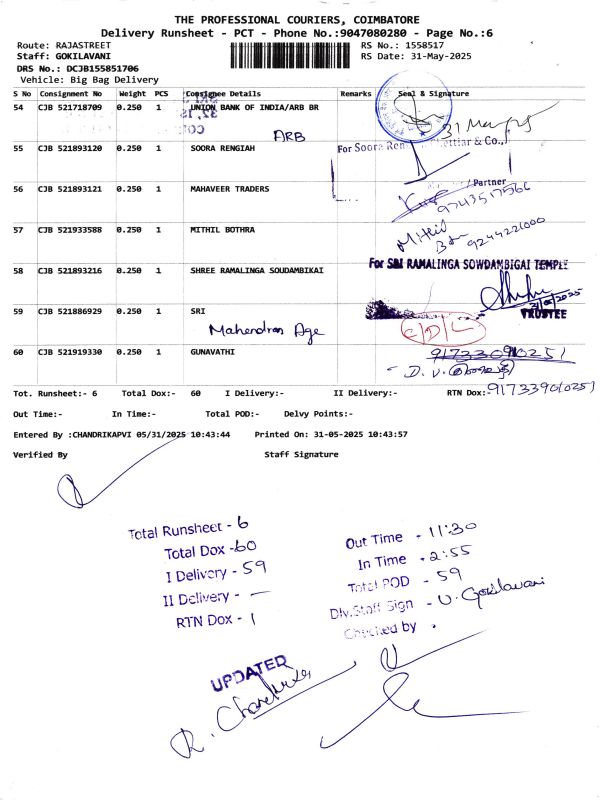 THE PROFESSIONAL COURIERS, COIMBATORE
Delivery Runsheet - PCT - Phone No.:9047080280 - Page No.:6
Route: RAJASTREET RS No.: 1558517
Staff: GOKILAVANI RS Date: 31-May-2025
DRS No.: DCJB155851706
Vehicle: Big Bag Delivery
S No Consignment No Weight PCS Consignee Details Remarks Seal & Signature
54 CJB 521718709 0.250 1 UNION BANK OF INDIA/ARB BR
ARB
55 CJB 521893120 0.250 1 SOORA RENGIAH For Soora Ren Chettiar & Co.,
56 CJB 521893121 0.250 1 MAHAVEER TRADERS / Partner
9743517566
57 CJB 521933588 0.250 1 MITHIL BOTHRA Mithil
9244221000
58 CJB 521893216 0.250 1 SHREE RAMALINGA SOUDAMBIKAI For SRI RAMALINGA SOWDAMBIGAI TEMPLE
TRUSTEE
59 CJB 521886929 0.250 1 SRI
Mahendran Age C/D/L
60 CJB 521919330 0.250 1 GUNAVATHI
917339010251
Tot. Runsheet:- 6 Total Dox:- 60 I Delivery:- II Delivery:- RTN Dox:-
Out Time:- In Time:- Total POD:- Delvy Points:-
Entered By :CHANDRIKAPVI 05/31/2025 10:43:44 Printed On: 31-05-2025 10:43:57
Verified By Staff Signature
Total Runsheet - 6
Total Dox - 60
I Delivery - 59
II Delivery - —
RTN Dox - 1
Out Time - 11:30
In Time - 2:55
Total POD - 59
Dlv.Staff Sign - U. Gokilavani
Checked by
UPDATED